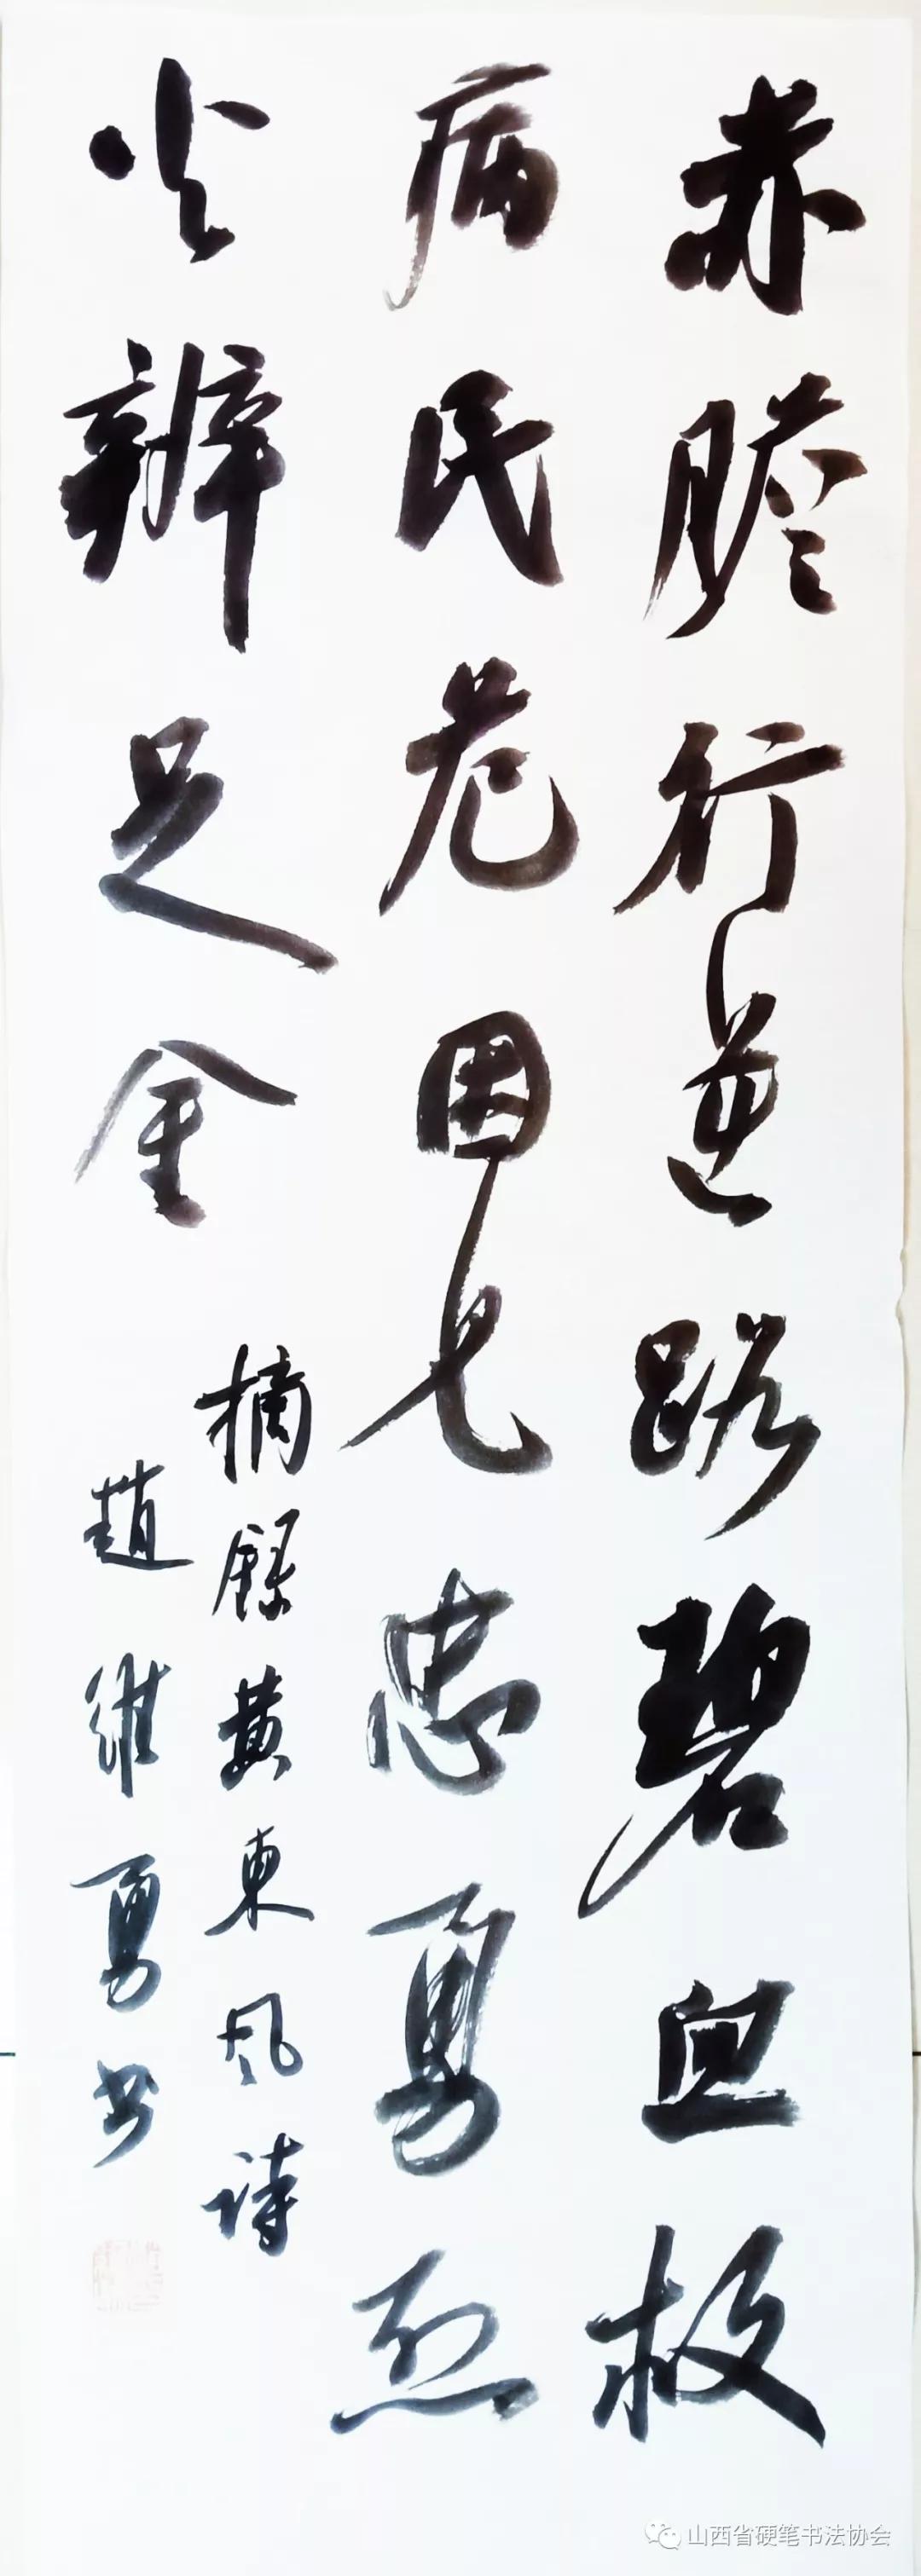 赤膽行逆路碧血极
病民危困七忠勇烈
火辨足金
摘錄黄東风诗
趙維勇书
山西省硬笔书法协会